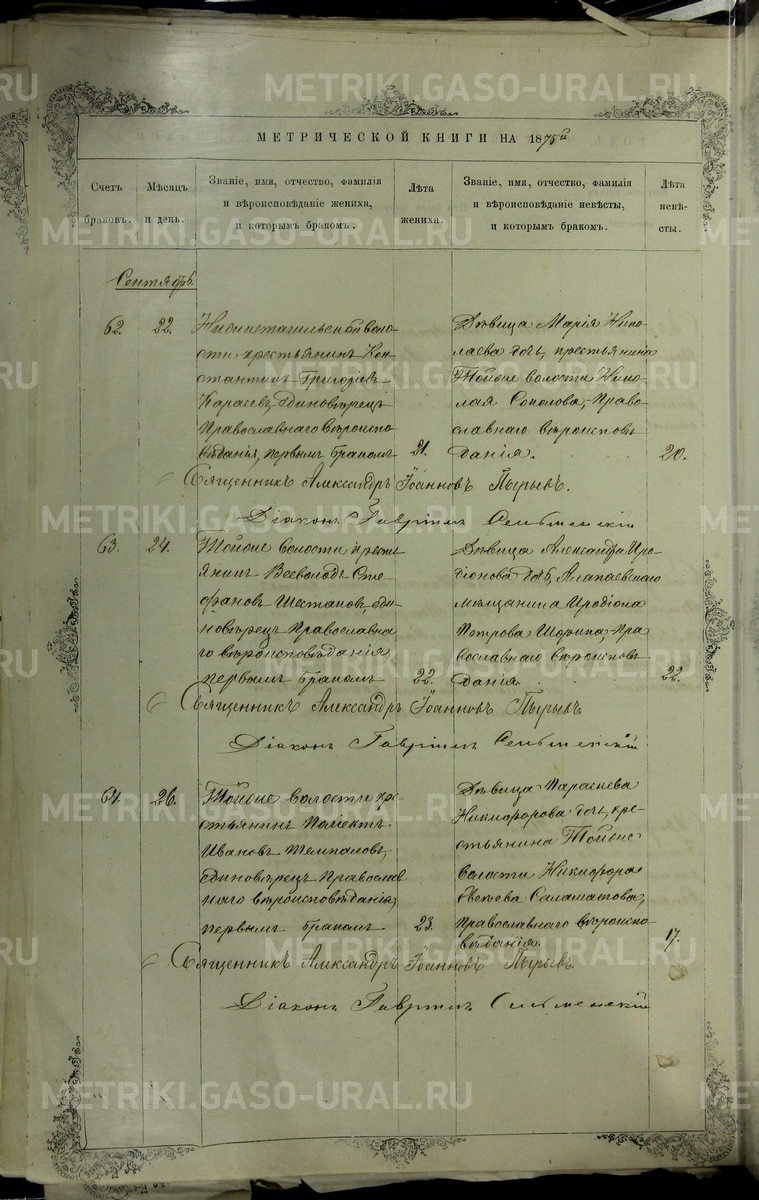 METRIKI.GASO-URAL.RU
МЕТРИЧЕСКОЙ КНИГИ НА 1875й
Счетъ браковъ.
Мѣсяцъ и день.
Званіе, имя, отчество, фамилія
и вѣроисповѣданіе жениха,
и которымъ бракомъ.
Лѣта жениха.
Званіе, имя, отчество, фамилія
и вѣроисповѣданіе невѣсты,
и которымъ бракомъ.
Лѣта невѣ-
сты.
METRIKI.GASO-URAL.RU
Сентябрь.
62. 22.
Нижнетагильской воло-
сти крестьянинъ Кон-
стантинъ Григорьевъ
Карасевъ, единовѣрецъ
Православнаго вѣроиспо-
вѣданія, первымъ бракомъ
21.
Дѣвица Марія Нико-
лаева дочь, крестьянина
Тойже волости Нико-
лая Соколова, Право-
славнаго вѣроисповѣ-
данія.
20.
METRIKI.GASO-URAL.RU
Священникъ Александръ Іоанновъ Пырьевъ.
Діаконъ Гавріилъ
METRIKI.GASO-URAL.RU
63. 24.
Тойже волости кресть-
янинъ Всеволодъ Сте-
фановъ Шестаковъ, еди-
новѣрецъ Православна-
го вѣроисповѣданія,
первымъ бракомъ
22.
Дѣвица Александра Иро-
діонова дочь, Алапаевскаго
мѣщанина Иродіона
Петрова Шорина, Пра-
вославнаго вѣроисповѣ-
данія
22.
METRIKI.GASO-URAL.RU
Священникъ Александръ Іоанновъ Пырьевъ
Діаконъ Гавріилъ
64. 26.
Тойже волости кре-
стьянинъ
Ивановъ
единовѣрецъ Православ-
наго вѣроисповѣданія,
первымъ бракомъ
23.
Дѣвица Параскева
Никифорова дочь, кре-
стьянина Тойже
волости Никифора
Саламатова,
Православнаго вѣроиспо-
вѣданія.
17.
METRIKI.GASO-URAL.RU
Священникъ Александръ Іоанновъ Пырьевъ
Діаконъ Гавріилъ
METRIKI.GASO-URAL.RU